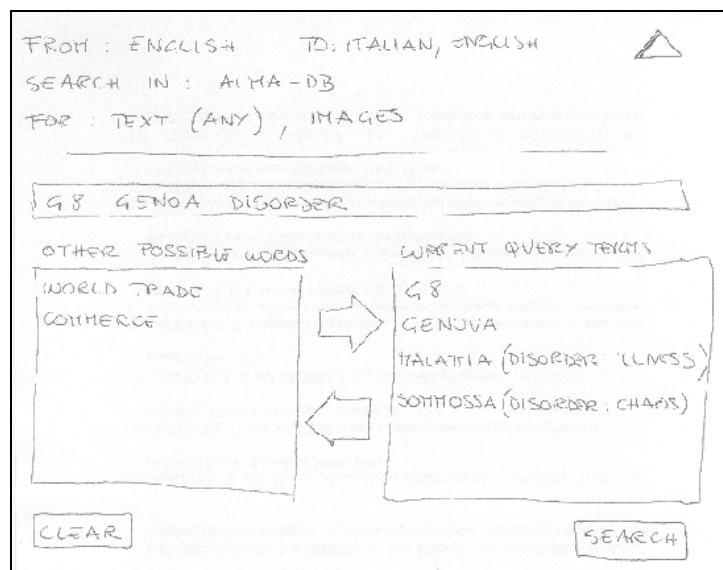 FROM : ENGLISH TO: ITALIAN, ENGLISH
SEARCH IN : ALMA-DB
FOR : TEXT (ANY), IMAGES
G8 GENOA DISORDER
OTHER POSSIBLE WORDS
CURRENT QUERY TERMS
WORLD TRADE
COMMERCE
G8
GENOVA
MALATTIA (DISORDER: ILLNESS)
SOMMOSSA (DISORDER: CHAOS)
CLEAR
SEARCH